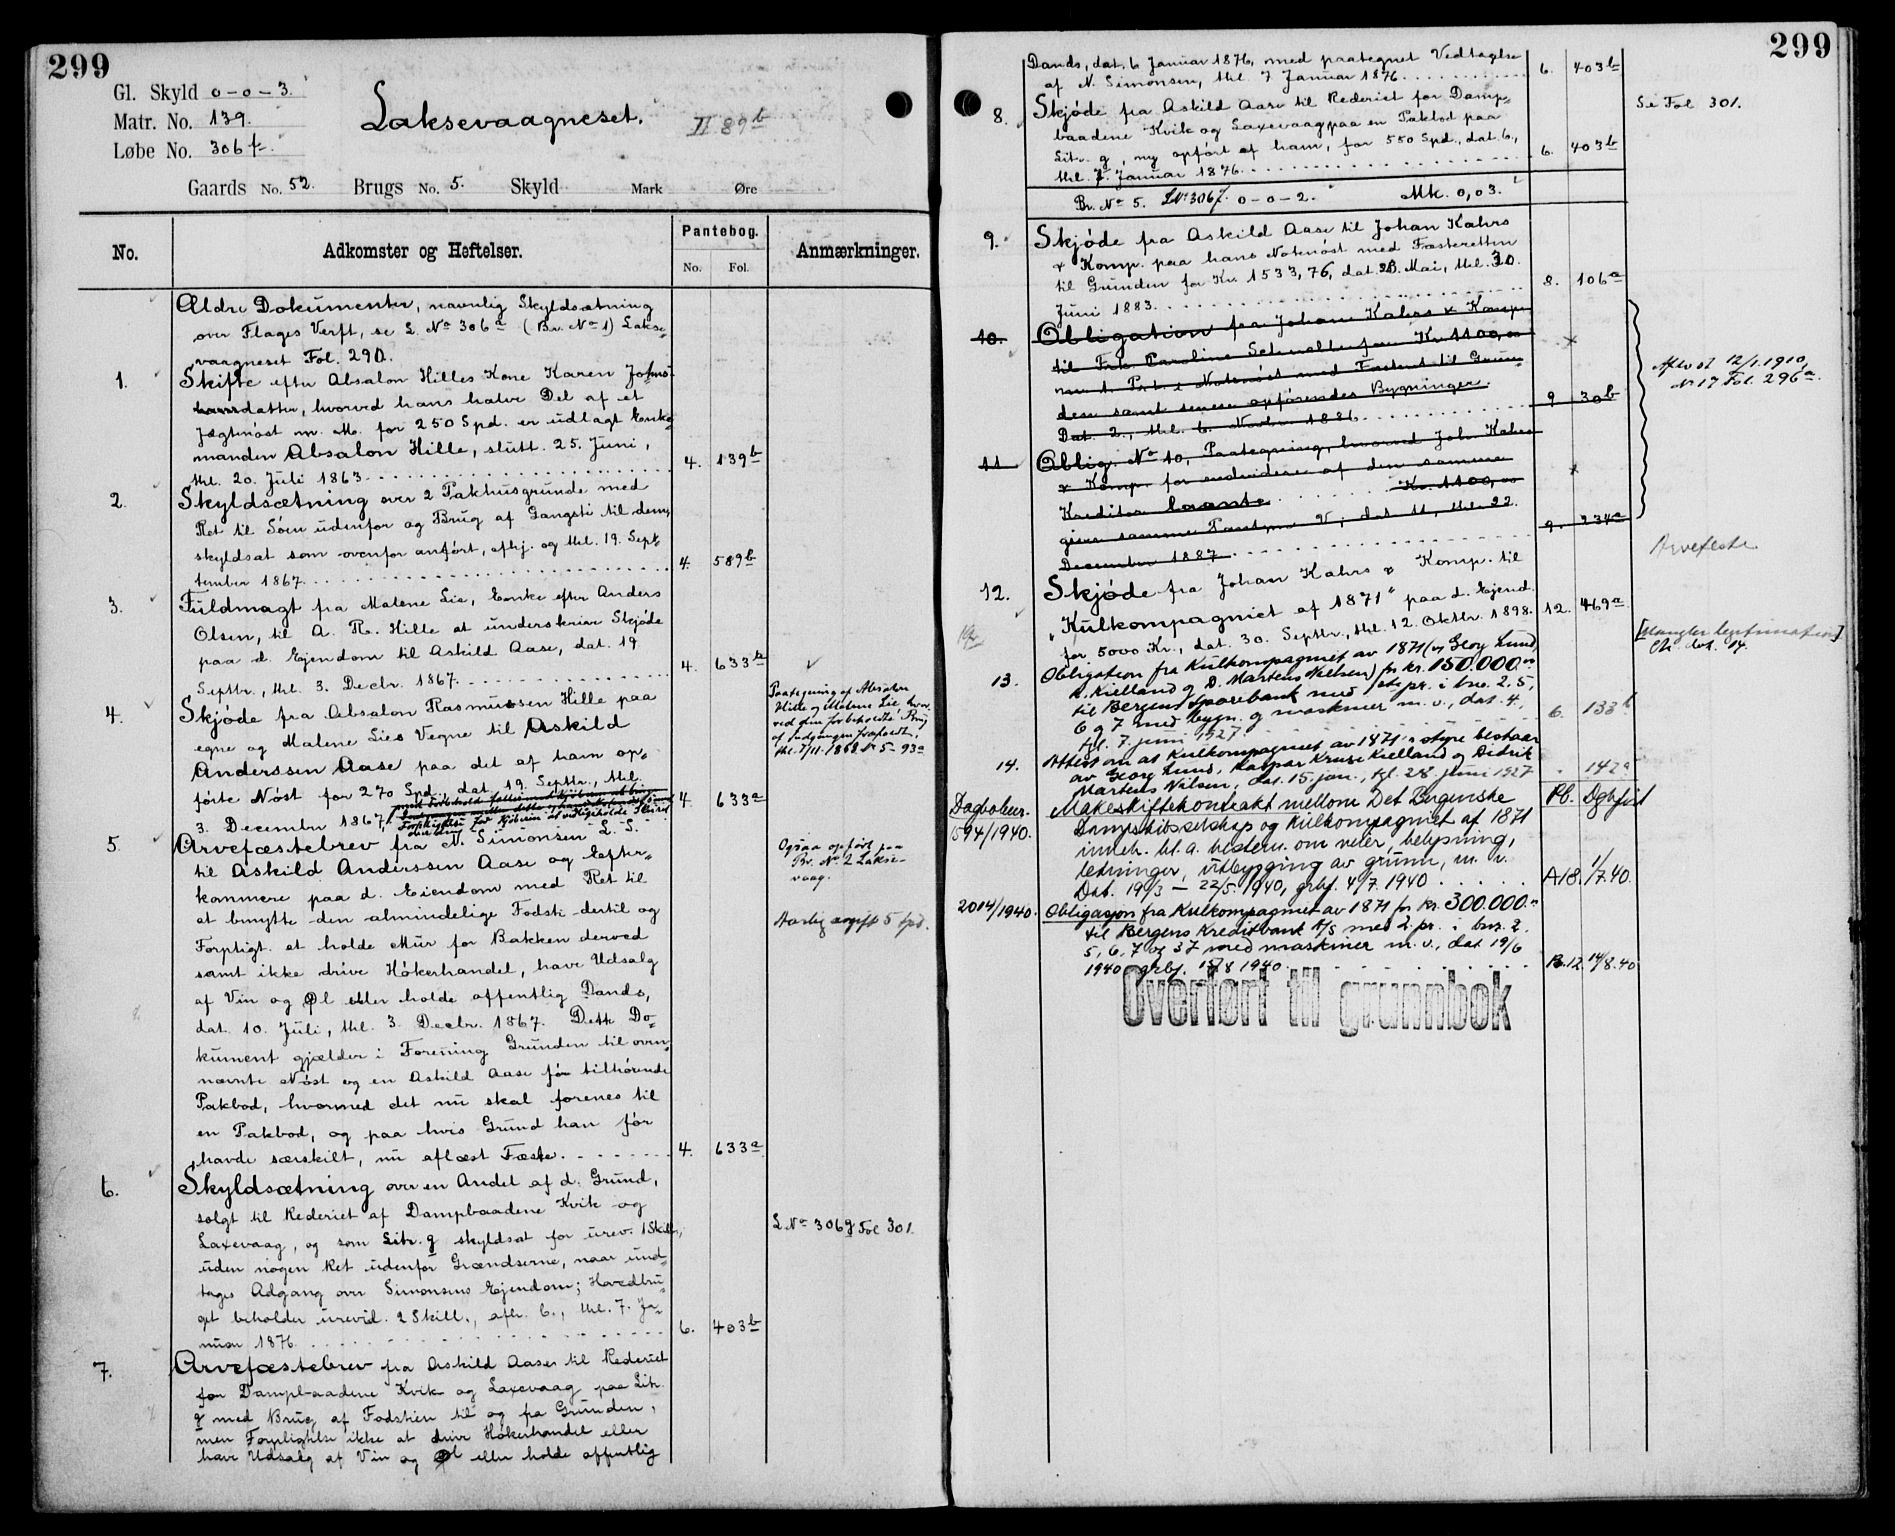 299
Gl. Skyld 0-0-3.
Matr. No. 139.
Løbe No. 306 f.
Laksevaagneset.
II 89b
Gaards No. 52. Brugs No. 5. Skyld Mark Øre
No.
Adkomster og Heftelser.
Pantebog.
No. Fol.
Anmærkninger.
Ældre Dokumenter, navnlig Skyldsætning
over Flages Verft, se L. No 306a (Br. No 1) Lakse-
vaagneset Fol. 290.
1. Skifte efter Absalon Hilles Kone Karen Johns-
datter, hvorved hans halve Del af et
Jægtnøst m. M. for 250 Spd. er udlagt Enke-
manden Absalon Hille, slutt. 25. Juni,
thl. 20. Juli 1863. 4. 139b
2. Skyldsætning over 2 Pakhusgrunde med
Ret til Søen udenfor og Brug af Gangsti til dem,
skyldsat som ovenfor anført, afhj. og thl. 19. Sept-
tember 1867. 4. 589b
3. Fuldmagt fra Malene Lie, Enke efter Anders
Olsen, til A. R. Hille at underskrive Skjøde
paa d. Ejendom til Askild Aase, dat. 19
Septbr., thl. 3. Decbr. 1867. 4. 633a
4. Skjøde fra Absalon Rasmussen Hille paa
egne og Malene Lies Vegne til Askild
Anderssen Aase paa det af ham op-
førte Nøst for 270 Spd., dat. 19. Septbr., thl.
3. December 1867, 4. 633a
Paategning af Absalon
Hille og Malene Lie, hvor-
ved den forbeholdte Brug
af Indgangen frafaldt,
thl. 7/11-1868 Nr 5-93a
5. Arvefæstebrev fra N. Simonsen L. S.
til Askild Anderssen Aase og Efter-
kommere paa d. Eiendom med Ret til
at benytte den almindelige Fodsti dertil og
Forpligt. at holde Mur for Bakken derved
samt ikke drive Høkerhandel, have Udsalg
af Vin og Øl eller holde offentlig Dands,
dat. 10. Juli, thl. 3. Decbr. 1867. Dette Do-
kument gjælder i Forening Grunden til oven-
nævnte Nøst og en Askild Aase før tilhørende
Pakbod, hvormed det nu skal forenes til
en Pakbod, og paa hvis Grund han før
havde særskilt, nu aflæst Fæste. 4. 633a
Ogsaa opført paa
Br. No 2 Lakse-
vaag.
Aarlig avgift 5 Spd.
6. Skyldsætning over en Andel af d. Grund,
solgt til Rederiet af Dampbaadene Kvik og
Laxevaag, og som Litr. g skyldsat for urev. 1 Skill.,
uden nogen Ret udenfor Grændserne, naar und-
tages Adgang over Simonsens Ejendom; Hovedbru-
get beholder urevid. 2 Skill., afhr. 6., thl. 7. Ja-
nuar 1876. 6. 403b
L No 306g Fol 301.
7. Arvefæstebrev fra Askild Aase til Rederiet
for Dampbaadene Kvik og Laxevaag paa Litr.
g med Brug af Fodstien til og fra Grunden,
men Forpligtelse ikke at drive Høkerhandel eller
have Udsalg af Vin og Øl eller holde offentlig
299
Dands, dat. 6 Januar 1876, med paategnet Vedtagelse
af N. Simonsen, thl. 7 Januar 1876. 6. 403b
8. Skjøde fra Askild Aase til Rederiet for Damp-
baadene Kvik og Laxevaag paa en Pakbod paa
Litr. g, ny opført af ham, for 550 Spd., dat. 6.,
thl. 7. Januar 1876. 6. 403b
Se Fol 301.
Br. No 5. L No 306f. 0-0-2. Mk. 0,03.
9. Skjøde fra Askild Aase til Johan Kahrs
& Komp. paa hans Notenøst med Fæsteretten
til Grunden for Kr. 1533,76, dat. 28. Mai, thl. 30.
Juni 1883. 8. 106a
10. Obligation fra Johan Kahrs & Komp.
til Frk. Paroline Schmolte for Kr. 1100,00
m. 1. Prt. i Notenøst med Fæsteret til Grun-
den samt senere opførendes Bygninger.
Dat. 2., thl. 6. Novbr. 1886. 9 30b
Aflæst 12/1. 1910,
No 17 Fol. 296a.
11 Oblig. No 10, Paategning, hvorved Joh. Kahrs
& Komp. for endvidere af den samme
Kreditor laante Kr. 1100,00
giver samme Pant, dat. 11., thl. 22.
December 1887. 9. 234a
Arvefeste
12. Skjøde fra Johan Kahrs & Komp. til
"Kulkompagniet af 1871" paa d. Ejend.
for 5000 Kr., dat. 30. Septbr., thl. 12. Oktbr. 1898. 12. 469a
[Mangler legitimation]
13. Obligation fra Kulkompagniet av 1871 (v/ Georg Lund,
K. Kielland og D. Martens Nilsen) for kr. 150.000.00
til Bergens Sparebank med 1ste pr. i bno. 2, 5,
6 og 7 med bygn. og maskiner m. v., dat. 4.,
tgl. 7. juni 1927. 6. 133b
14. Attest om at Kulkompagniet av 1871's styre bestaar
av Georg Lund, Kaspar Kruse Kielland og Didrik
Martens Nilsen, dat. 15. jan., tgl. 28. juni 1927 " 142a
Dagboknr.
1594/1940. Makeskiftekontrakt mellom Det Bergenske Pb. Dgbfrt
Dampskibsselskap og Kulkompagniet af 1871
inneh. bl. a. bestem. om veier, belysning,
ledninger, utbygging av grunn, m. v.
Dat. 19/3 - 22/5. 1940, grbf. 4/7. 1940. A18. 1/7.40.
2014/1940. Obligasjon fra Kulkompagniet av 1871 for kr. 300.000.00
til Bergens Kreditbank A/S med 2. pr. i bnr. 2,
5, 6, 7 og 37 med maskiner m. v., dat 19/6
1940 grbf. 15/8 1940. B.12. 14/8.40
Overført til grunnbok